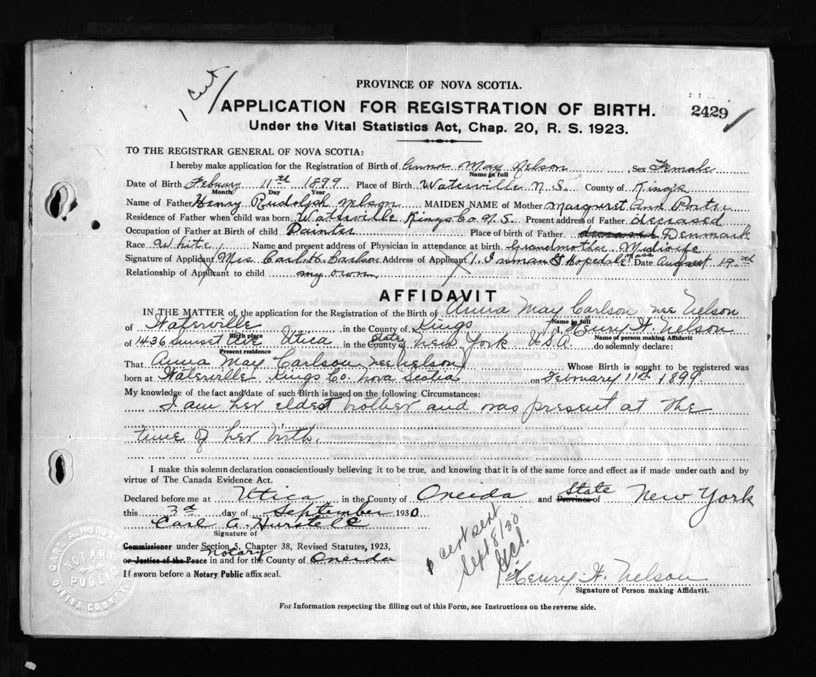 1 Cert
PROVINCE OF NOVA SCOTIA.
APPLICATION FOR REGISTRATION OF BIRTH. 2429
Under the Vital Statistics Act, Chap. 20, R. S. 1923.
TO THE REGISTRAR GENERAL OF NOVA SCOTIA:
I hereby make application for the Registration of Birth of Anna May Nelson Sex Female
Name in full
Date of Birth Febuary 11th 1899 Place of Birth Waterville N.S. County of Kings
Month Day Year
Name of Father Henry Rudolph Nelson MAIDEN NAME of Mother Margaret Ann
Residence of Father when child was born Waterville Kings Co N.S. Present address of Father deceased
Occupation of Father at Birth of child Painter Place of birth of Father deceased Denmark
Race White Name and present address of Physician in attendance at birth Grandmother Midwife
Signature of Applicant Mrs Carl Carlson Address of Applicant 1 Inman St Hopedale Mass Date August 19
Relationship of Applicant to child my own
AFFIDAVIT
IN THE MATTER of the application for the Registration of the Birth of Anna May Carlson nee Nelson
Name in full
of Waterville in the County of Kings I, Henry H. Nelson
Birth place Name of person making Affidavit
of 1436 Sunset Ave Utica in the County of State New York U.S.A do solemnly declare:
Present residence
That Anna May Carlson nee Nelson Whose Birth is sought to be registered was
born at Waterville Kings Co. Nova Scotia on February 11th 1899.
My knowledge of the fact and date of such Birth is based on the following Circumstances:
I am her eldest brother and was present at the
time of her birth.
I make this solemn declaration conscientiously believing it to be true, and knowing that it is of the same force and effect as if made under oath and by
virtue of The Canada Evidence Act.
Declared before me at Utica in the County of Oneida and Province of State New York
this 3d day of September 1930
Carl A.
Signature of
Commissioner under Section 5, Chapter 38, Revised Statutes, 1923,
or Justice of the Peace notary in and for the County of Oneida
If sworn before a Notary Public affix seal.
1 cert sent
Sept 8/30
Henry H. Nelson
Signature of Person making Affidavit.
NOTARY
PUBLIC
ONEIDA COUNTY
For Information respecting the filling out of this Form, see Instructions on the reverse side.